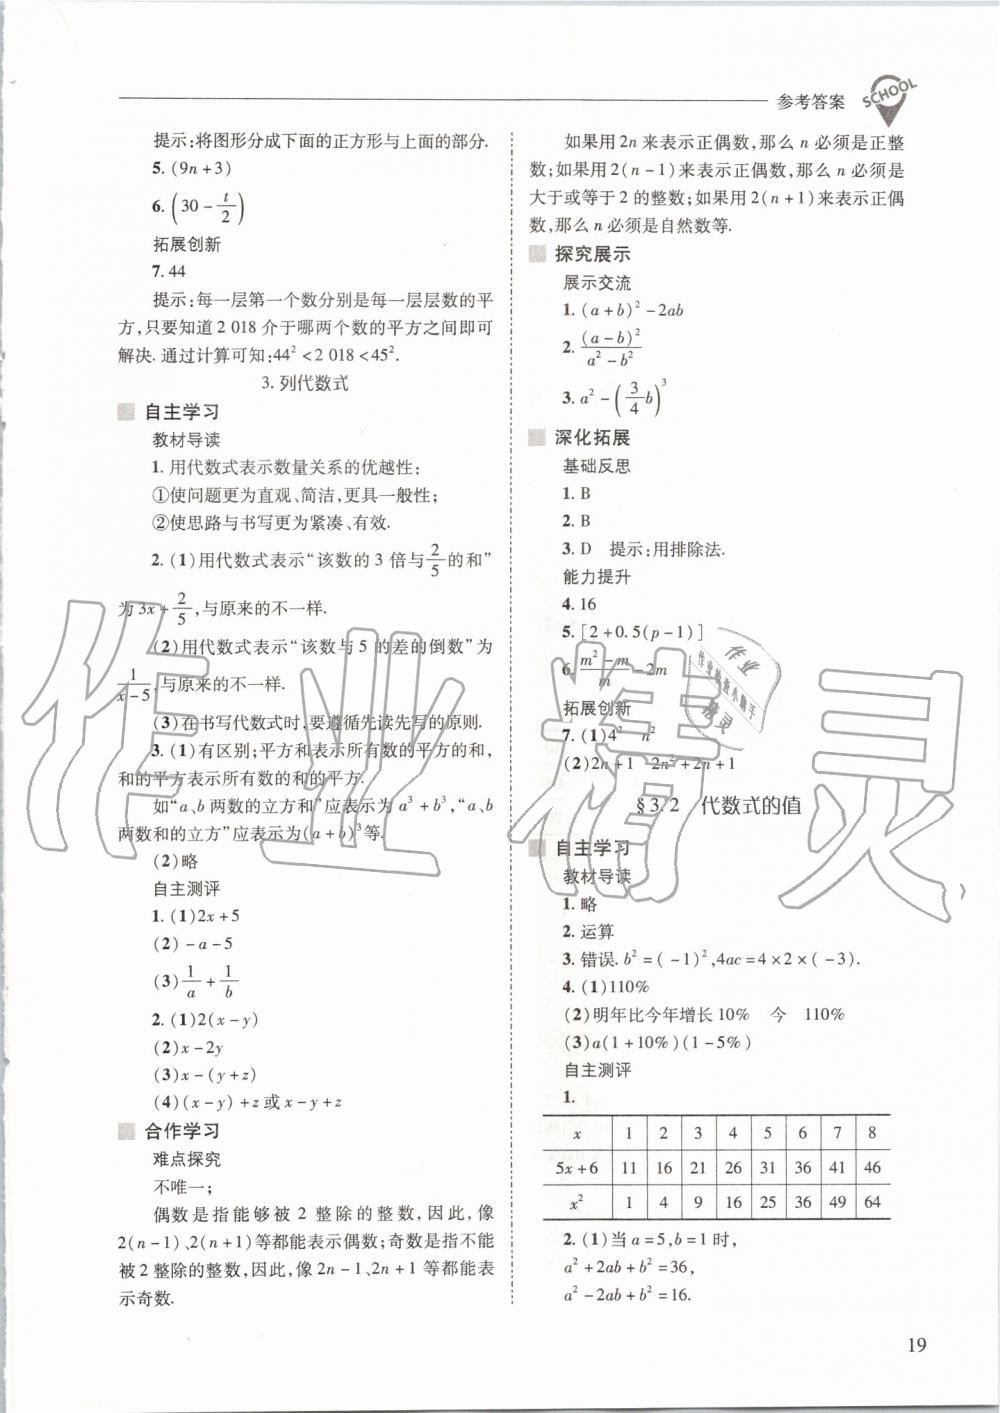 参考答案
SCHOOL
提示:将图形分成下面的正方形与上面的部分.
5. (9n+3)
6. (30 - t/2)
拓展创新
7. 44
提示:每一层第一个数分别是每一层层数的平
方,只要知道 2 018 介于哪两个数的平方之间即可
解决. 通过计算可知:44² < 2 018 < 45².
3. 列代数式
自主学习
教材导读
1. 用代数式表示数量关系的优越性:
①使问题更为直观、简洁,更具一般性;
②使思路与书写更为紧凑、有效.
2. (1)用代数式表示“该数的 3 倍与 2/5 的和”
为 3x + 2/5,与原来的不一样.
(2)用代数式表示“该数与 5 的差的倒数”为
1/(x-5),与原来的不一样.
(3)在书写代数式时,要遵循先读先写的原则.
3. (1)有区别;平方和表示所有数的平方的和,
和的平方表示所有数的和的平方.
如“a、b 两数的立方和”应表示为 a³+b³,“a、b
两数和的立方”应表示为(a+b)³等.
(2)略
自主测评
1. (1)2x+5
(2)-a-5
(3)1/a + 1/b
2. (1)2(x-y)
(2)x-2y
(3)x-(y+z)
(4)(x-y)+z 或 x-y+z
合作学习
难点探究
不唯一;
偶数是指能够被 2 整除的整数,因此,像
2(n-1)、2(n+1)等都能表示偶数;奇数是指不能
被 2 整除的整数,因此,像 2n-1、2n+1 等都能表
示奇数.
如果用 2n 来表示正偶数,那么 n 必须是正整
数;如果用 2(n-1)来表示正偶数,那么 n 必须是
大于或等于 2 的整数;如果用 2(n+1)来表示正偶
数,那么 n 必须是自然数等.
探究展示
展示交流
1. (a+b)²-2ab
2. (a-b)²/(a²-b²)
3. a²-(3/4 b)³
深化拓展
基础反思
1. B
2. B
3. D 提示:用排除法.
能力提升
4. 16
5. [2+0.5(p-1)]
6. (m²-m)/m - 2m
拓展创新
7. (1)4² n²
(2)2n+1 2n²+2n+1
§3.2 代数式的值
自主学习
教材导读
1. 略
2. 运算
3. 错误. b²=(-1)²,4ac=4×2×(-3).
4. (1)110%
(2)明年比今年增长 10% 今 110%
(3)a(1+10%)(1-5%)
自主测评
1.
x 1 2 3 4 5 6 7 8
5x+6 11 16 21 26 31 36 41 46
x² 1 4 9 16 25 36 49 64
2. (1)当 a=5,b=1 时,
a²+2ab+b²=36,
a²-2ab+b²=16.
19
作业精灵
作业
作业检查小助手
精灵